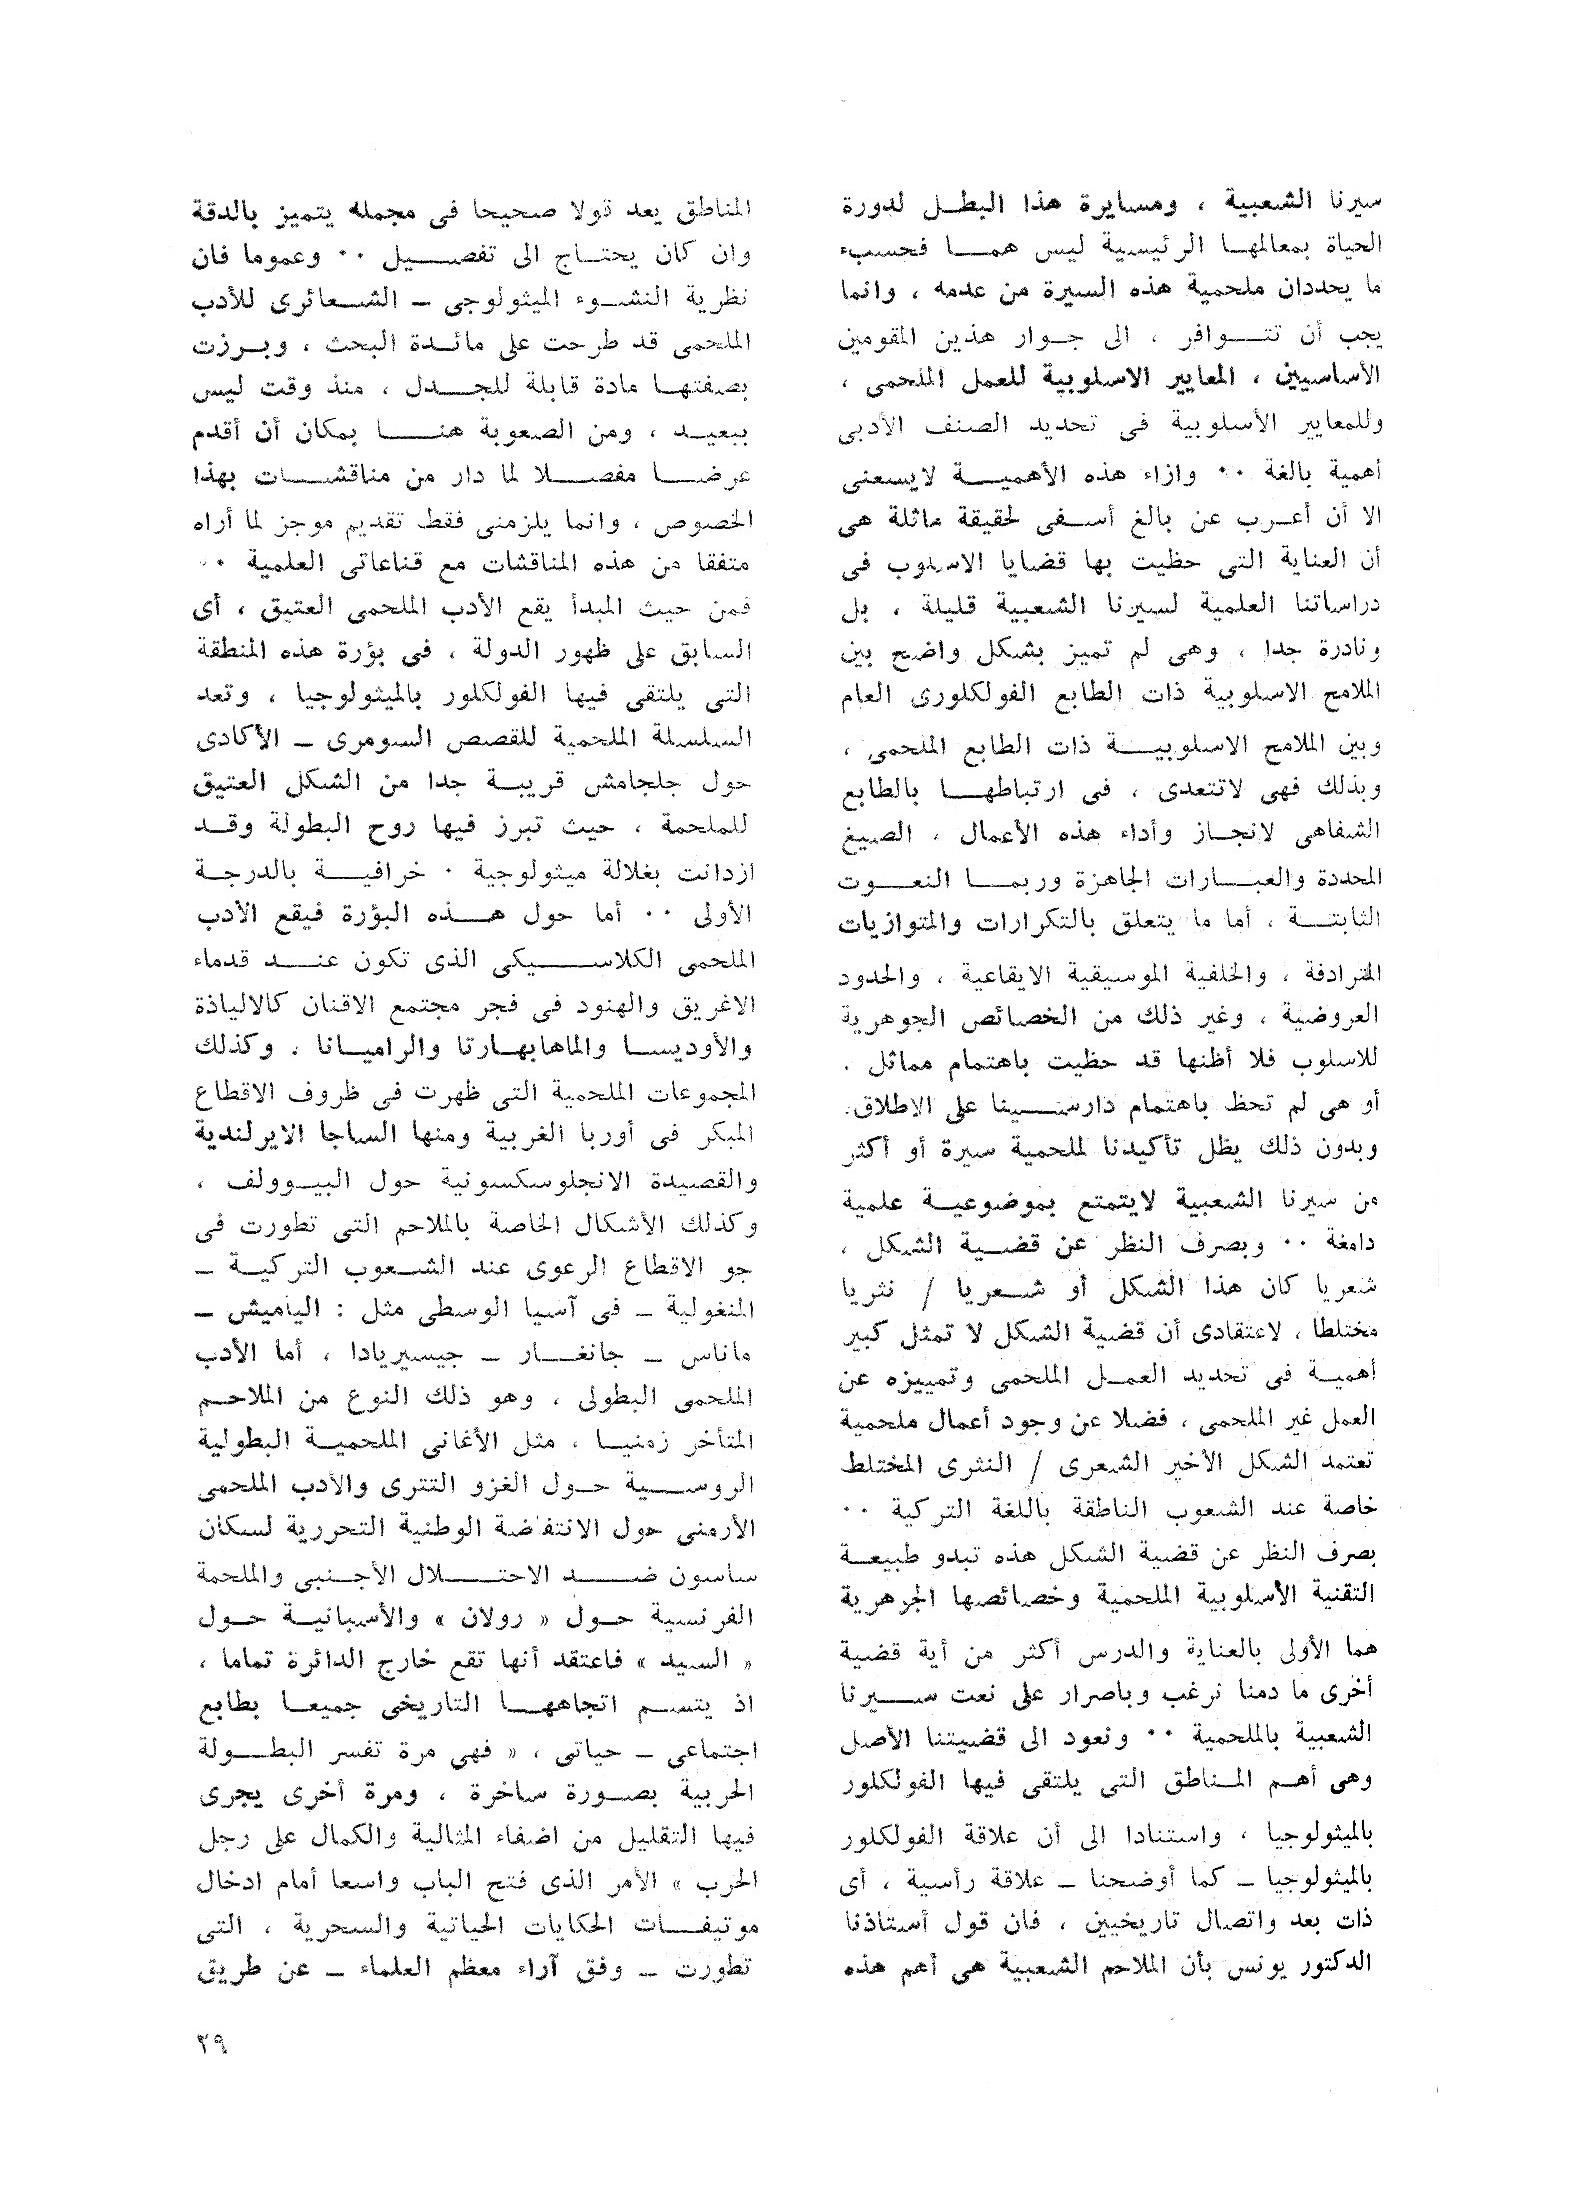 سيرنا الشعبية ، ومسايرة هذا البطل لدورة
الحياة بمعالمها الرئيسية ليس هما فحسب
ما يحددان ملحمية هذه السيرة من عدمه ، وانما
يجب أن تتوافر ، الى جوار هذين المقومين
الأساسيين ، المعايير الاسلوبية للعمل الملحمى ،
وللمعايير الأسلوبية فى تحديد الصنف الأدبى
أهمية بالغة ٠٠ وازاء هذه الأهمية لايسعنى
الا أن أعرب عن بالغ أسفى لحقيقة ماثلة هى
أن العناية التى حظيت بها قضايا الاسلوب فى
دراساتنا العلمية لسيرنا الشعبية قليلة ، بل
ونادرة جدا ، وهى لم تميز بشكل واضح بين
الملامح الاسلوبية ذات الطابع الفولكلورى العام
وبين الملامح الاسلوبية ذات الطابع الملحمى ،
وبذلك فهى لاتتعدى ، فى ارتباطها بالطابع
الشفاهى لانجاز وأداء هذه الأعمال ، الصيغ
المحددة والعبارات الجاهزة وربما النعوت
الثابتة ، أما ما يتعلق بالتكرارات والمتوازيات
المترادفة ، والخلفية الموسيقية الايقاعية ، والحدود
العروضية ، وغير ذلك من الخصائص الجوهرية
للاسلوب فلا أظنها قد حظيت باهتمام مماثل .
أو هى لم تحظ باهتمام دارسينا على الاطلاق.
وبدون ذلك يظل تأكيدنا لملحمية سيرة أو أكثر
من سيرنا الشعبية لايتمتع بموضوعية علمية
دامغة ٠٠ وبصرف النظر عن قضية الشكل ،
شعريا كان هذا الشكل أو شعريا / نثريا
مختلطا ، لاعتقادى أن قضية الشكل لا تمثل كبير
أهمية فى تحديد العمل الملحمى وتمييزه عن
العمل غير الملحمى ، فضلا عن وجود أعمال ملحمية
تعتمد الشكل الأخير الشعرى / النثرى المختلط
خاصة عند الشعوب الناطقة باللغة التركية ٠٠
بصرف النظر عن قضية الشكل هذه تبدو طبيعة
التقنية الأسلوبية الملحمية وخصائصها الجوهرية
هما الأولى بالعناية والدرس أكثر من أية قضية
أخرى ما دمنا نرغب وباصرار على نعت سيرنا
الشعبية بالملحمية ٠٠ ونعود الى قضيتنا الأصل
وهى أهم المناطق التى يلتقى فيها الفولكلور
بالميثولوجيا ، واستنادا الى أن علاقة الفولكلور
بالميثولوجيا ـ كما أوضحنا ـ علاقة رأسية ، أى
ذات بعد واتصال تاريخيين ، فان قول أستاذنا
الدكتور يونس بأن الملاحم الشعبية هى أهم هذه
المناطق يعد قولا صحيحا فى مجمله يتميز بالدقة
وان كان يحتاج الى تفصيل ٠٠ وعموما فان
نظرية النشوء الميثولوجى ـ الشعائرى للأدب
الملحمى قد طرحت على مائدة البحث ، وبرزت
بصفتها مادة قابلة للجدل ، منذ وقت ليس
ببعيد ، ومن الصعوبة هنا بمكان أن أقدم
عرضا مفصلا لما دار من مناقشات بهذا
الخصوص ، وانما يلزمنى فقط تقديم موجز لما أراه
متفقا من هذه المناقشات مع قناعاتى العلمية ٠٠
فمن حيث المبدأ يقع الأدب الملحمى العتيق ، أى
السابق على ظهور الدولة ، فى بؤرة هذه المنطقة
التى يلتقى فيها الفولكلور بالميثولوجيا ، وتعد
السلسلة الملحمية للقصص السومرى ـ الأكادى
حول جلجامش قريبة جدا من الشكل العتيق
للملحمة ، حيث تبرز فيها روح البطولة وقد
ازدانت بغلالة ميثولوجية ٠ خرافية بالدرجة
الأولى ٠٠ أما حول هذه البؤرة فيقع الأدب
الملحمى الكلاسيكى الذى تكون عند قدماء
الاغريق والهنود فى فجر مجتمع الاقنان كالالياذة
والأوديسا والماهابهارتا والراميانا ، وكذلك
المجموعات الملحمية التى ظهرت فى ظروف الاقطاع
المبكر فى أوربا الغربية ومنها الساجا الايرلندية
والقصيدة الانجلوسكسونية حول البيوولف ،
وكذلك الأشكال الخاصة بالملاحم التى تطورت فى
جو الاقطاع الرعوى عند الشعوب التركية ـ
المنغولية ـ فى آسيا الوسطى مثل : الياميش ـ
ماناس ـ جانغار ـ جيسيريادا ، أما الأدب
الملحمى البطولى ، وهو ذلك النوع من الملاحم
المتأخر زمنيا ، مثل الأغانى الملحمية البطولية
الروسية حول الغزو التترى والأدب الملحمى
الأرمنى حول الانتفاضة الوطنية التحررية لسكان
ساسون ضد الاحتلال الأجنبى والملحمة
الفرنسية حول « رولان » والأسبانية حول
« السيد » فاعتقد أنها تقع خارج الدائرة تماما ،
اذ يتسم اتجاهها التاريخى جميعا بطابع
اجتماعى ـ حياتى ، « فهى مرة تفسر البطولة
الحربية بصورة ساخرة ، ومرة أخرى يجرى
فيها التقليل من اضفاء المثالية والكمال على رجل
الحرب » الأمر الذى فتح الباب واسعا أمام ادخال
موتيفات الحكايات الحياتية والسحرية ، التى
تطورت ـ وفق آراء معظم العلماء ـ عن طريق
٢٩